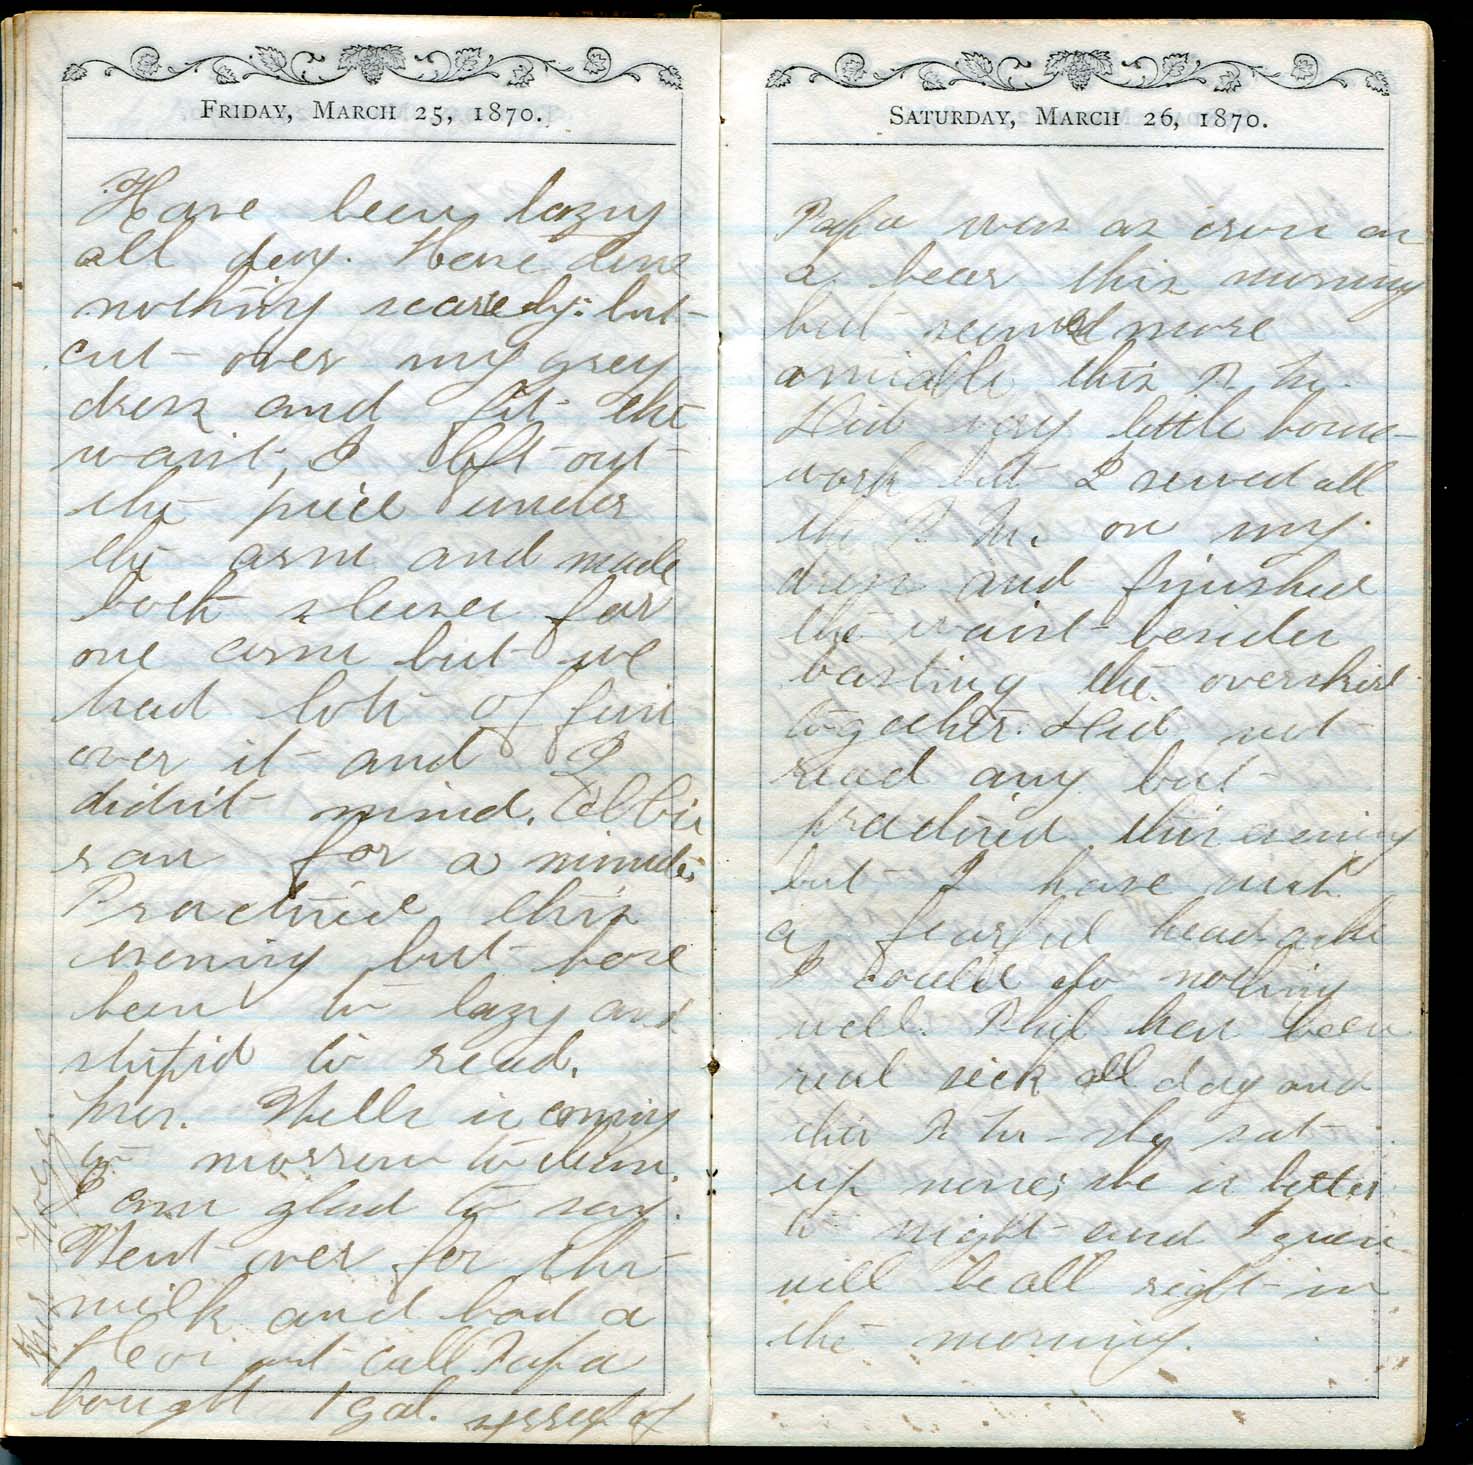 FRIDAY, MARCH 25, 1870.
Have been lazy
all day. Have done
nothing scarcely: but
cut over my grey
dress and fit the
waist, I left out
the piece under
the arm and made
both sleeves for
one arm but we
had lots of fun
over it and I
didn't mind. Ebbie
ran for a minute.
Practised this
evening but have
been to lazy and
stupid to read.
Mrs. Wells is coming
to morrow to clean
I am glad to say.
Went over for the
milk and had a
pleasant call Papa
bought 1 gal. syrup of
Mrs. Hogg
SATURDAY, MARCH 26, 1870.
Papa was as cross as
a bear this morning
but seemed more
amiable this P.M.
Did very little house-
work but I sewed all
the P.M. on my
dress and finished
the waist besides
basting the overskirt
together. Did not
read any but
practised this evening
but I have such
a fearful headache
I could do nothing
well. Phil has been
real sick all day and
this P.M. she sat
up some; she is better
to night and I guess
will be all right in
the morning.